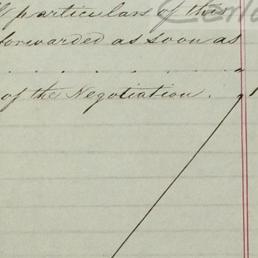 particulars of this
forwarded as soon as
. . . . . . . .
of the Negotiation.